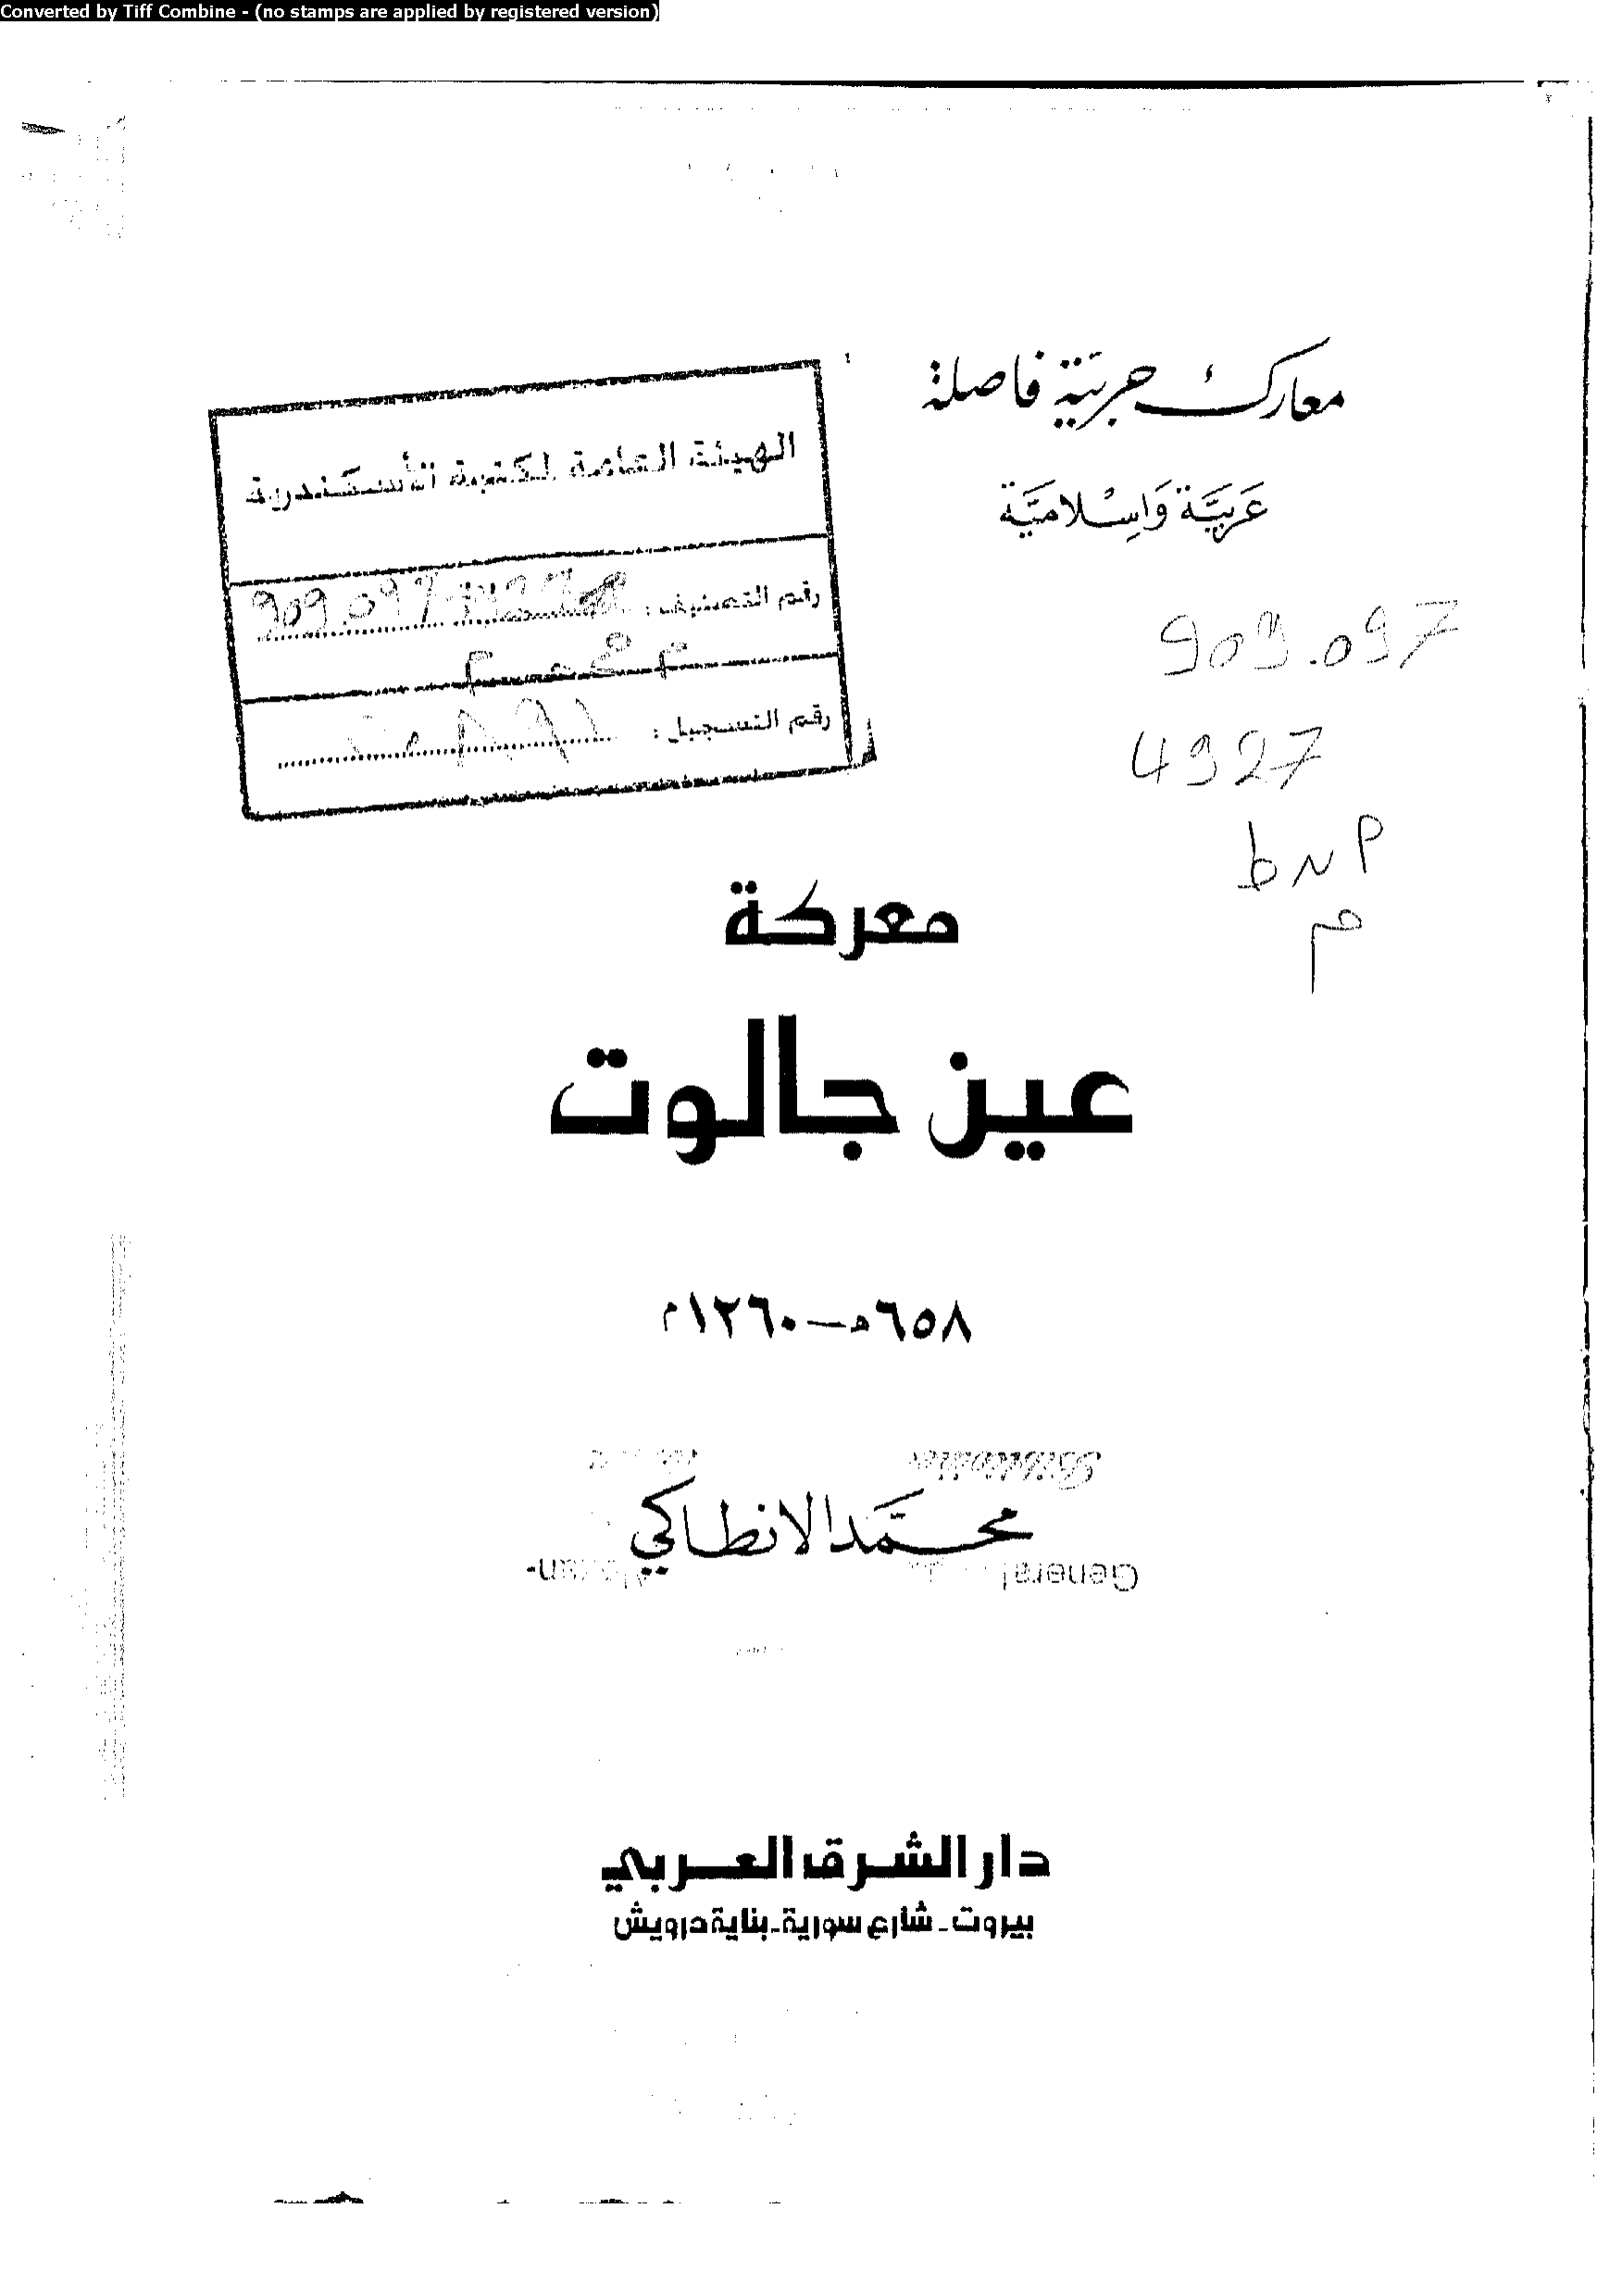 Converted by Tiff Combine - (no stamps are applied by registered version)
معارك حربية فاصلة
عَربيَّة وَإسْلاميَّة
الهيئة العامة لمكتبة الأسكندرية
رقم التصنيف : 909.097
رقم التسجيل :
909.097
4927
معركة
عين جالوت
٦٥٨هـ - ١٢٦٠م
محمَّد الانطاكي
General
دار الشرق العربي
بيروت - شارع سورية - بناية درويش